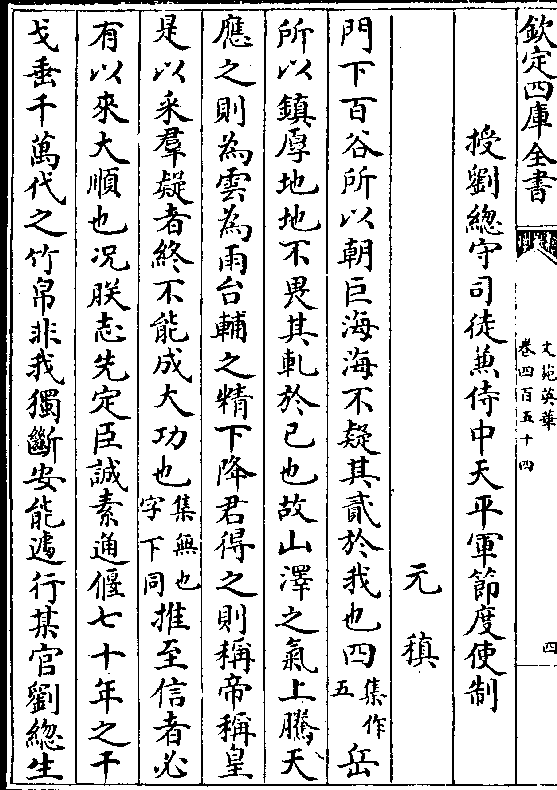 欽定四庫全書
文苑英華
卷四百五十四
四
授劉總守司徒兼侍中天平軍節度使制
元稹
門下百谷所以朝巨海海不疑其貳於我也四集作五岳
所以鎮厚地地不畏其軋於己也故山澤之氣上騰天
應之則為雲為雨台輔之精下降君得之則稱帝稱皇
是以采羣疑者終不能成大功也集無也字下同推至信者必
有以來大順也况朕志先定臣誠素通偃七十年之干
戈垂千萬代之竹帛非我獨斷安能遽行某官劉總生